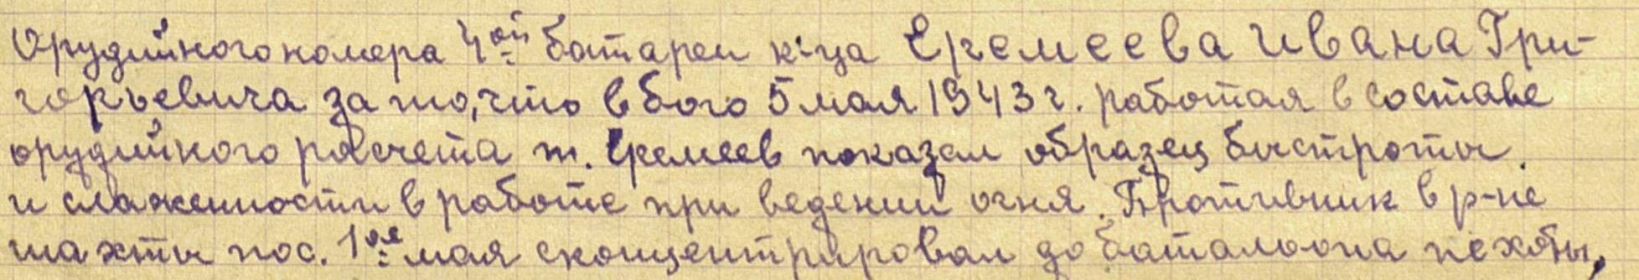 Орудийного номера 4ой батареи к-ца Еремеева Ивана Гри-
горьевича за то, что в бою 5 мая 1943 г. работая в составе
орудийного расчета т. Еремеев показал образец быстроты
и слаженности в работе при ведении огня. Противник в р-не
шахты пос. 1ое мая сконцентрировал до батальона пехоты,